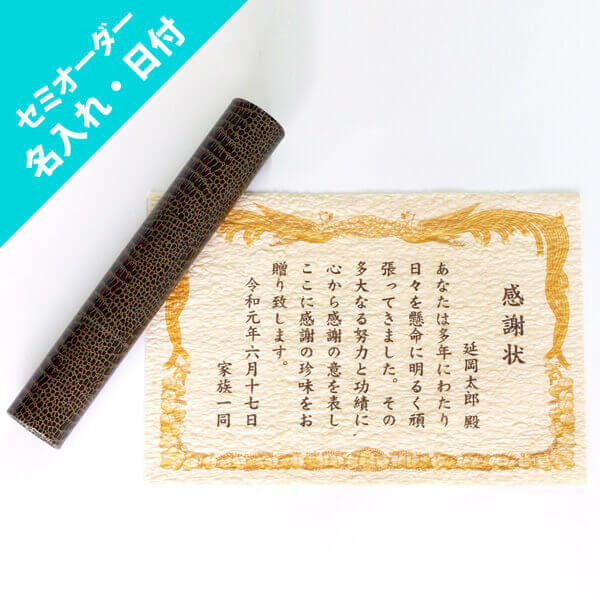 セミオーダー
名入れ・日付
感謝状
延岡太郎 殿
あなたは多年にわたり
日々を懸命に明るく頑
張ってきました。その
多大なる努力と功績に
心から感謝の意を表し
ここに感謝の珍味をお
贈り致します。
令和元年六月十七日
家族一同